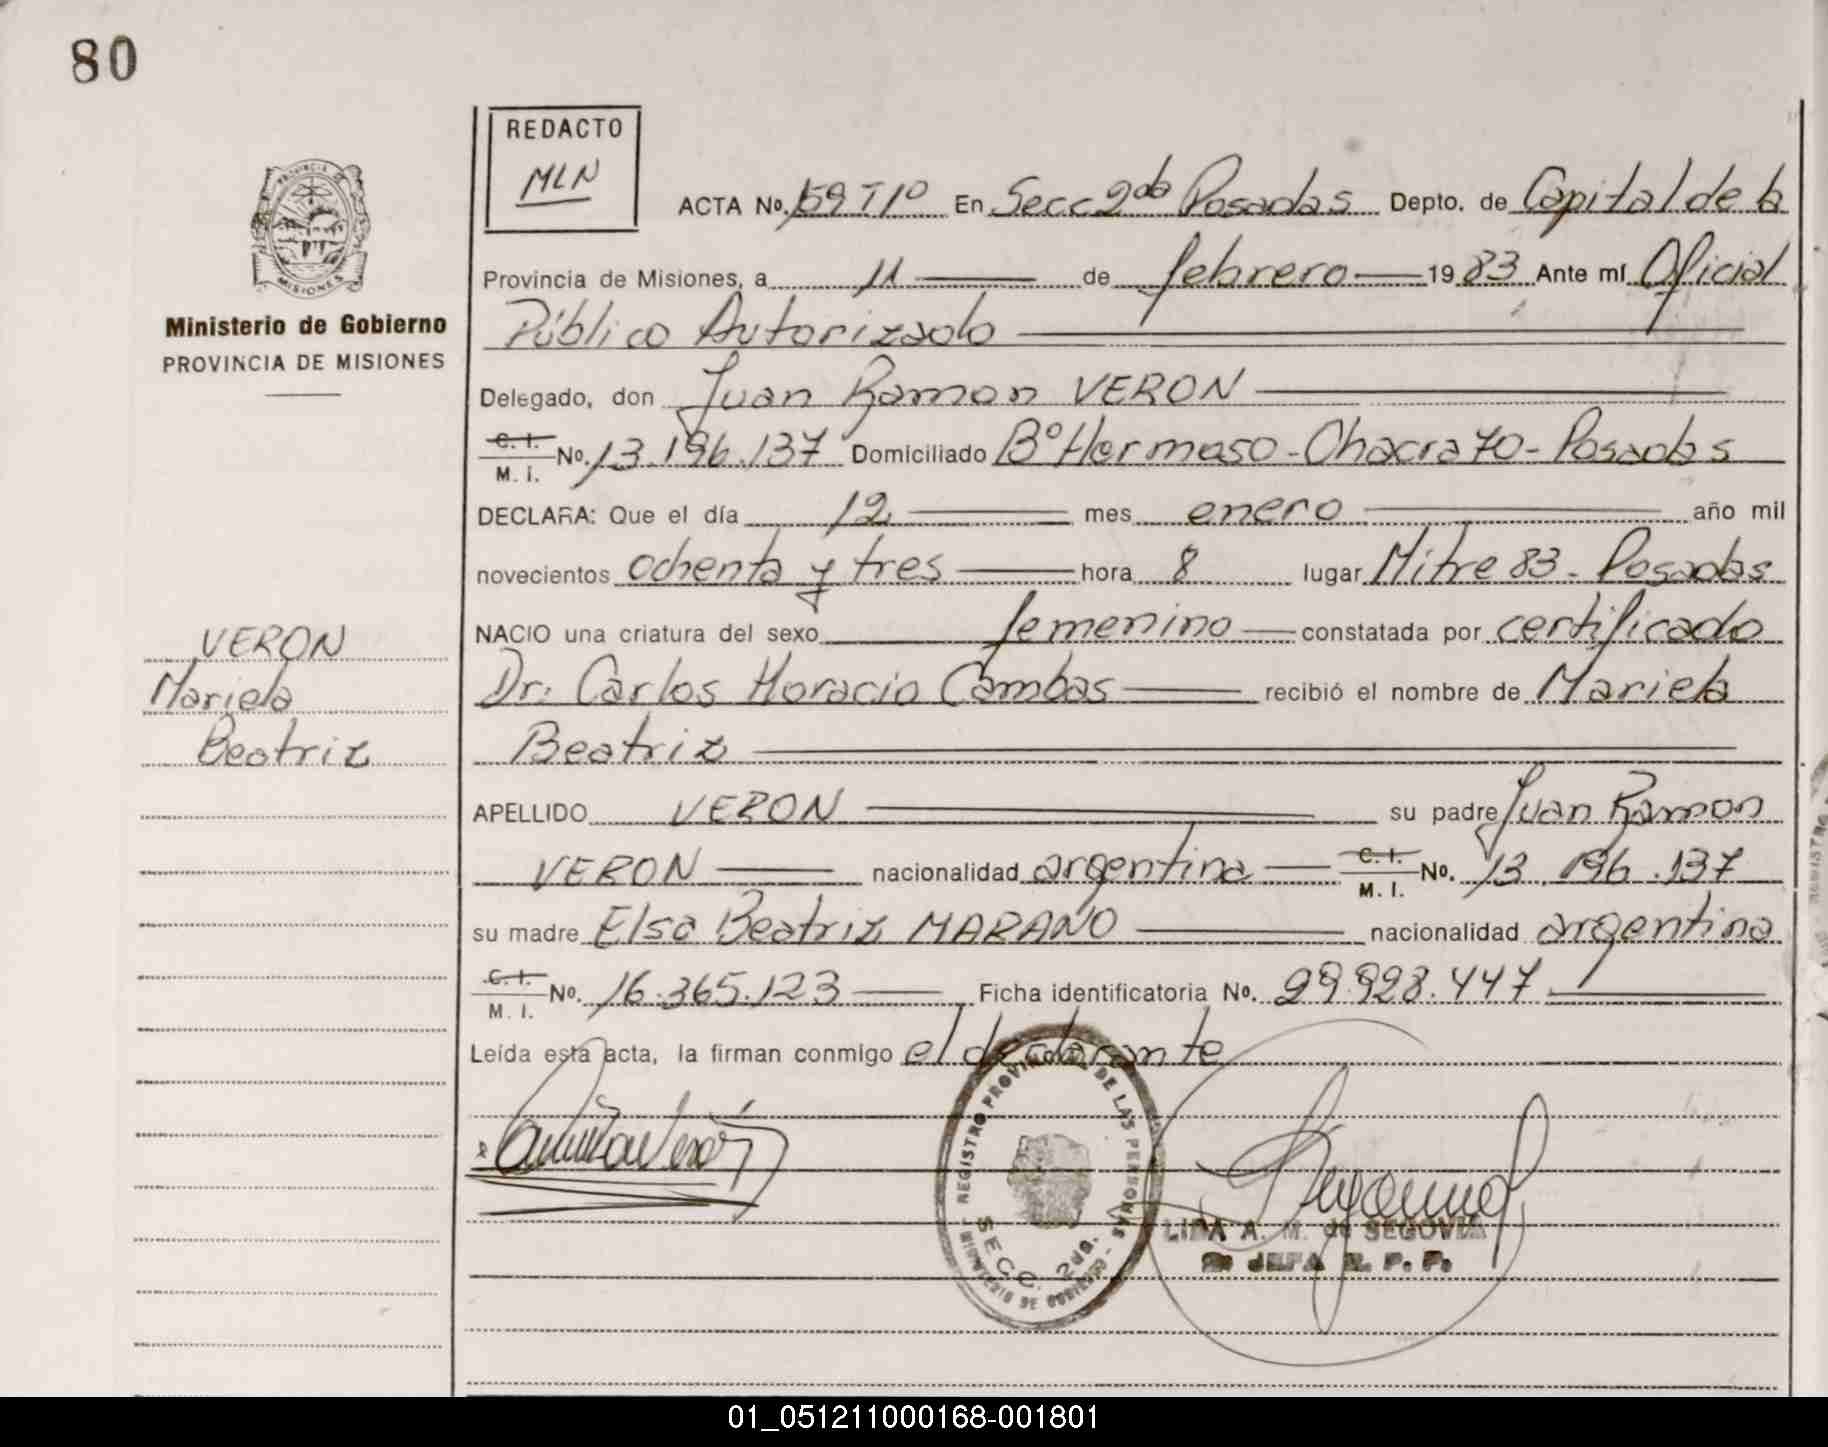 80
REDACTO
MLN
ACTA No. 159 T1º En Secc 2da Posadas Depto. de Capital de la
Provincia de Misiones, a 11 de febrero 1983 Ante mí Oficial
Público Autorizado
Delegado, don Juan Ramon VERON
C. I.
M. I. No. 13.196.137 Domiciliado Bº Hermoso - Chacra 70 - Posadas
DECLARA: Que el día 12 mes enero año mil
novecientos ochenta y tres hora 8 lugar Mitre 83 - Posadas
NACIO una criatura del sexo femenino constatada por certificado
Dr. Carlos Horacio Cambas recibió el nombre de Mariela
Beatriz
APELLIDO VERON su padre Juan Ramon
VERON nacionalidad argentina C. I.
M. I. No. 13.196.137
su madre Elsa Beatriz MARAÑO nacionalidad argentina
C. I.
M. I. No. 16.365.123 Ficha identificatoria No. 29.928.447
Leída esta acta, la firman conmigo el declarante
PROVINCIA DE
MISIONES
Ministerio de Gobierno
PROVINCIA DE MISIONES
VERON
Mariela
Beatriz
REGISTRO PROVINCIAL DE LAS PERSONAS
SECC. 2da.
MINISTERIO DE GOBIERNO
LIDA A. M. de SEGOVIA
JEFA R. P. P.
01_051211000168-001801